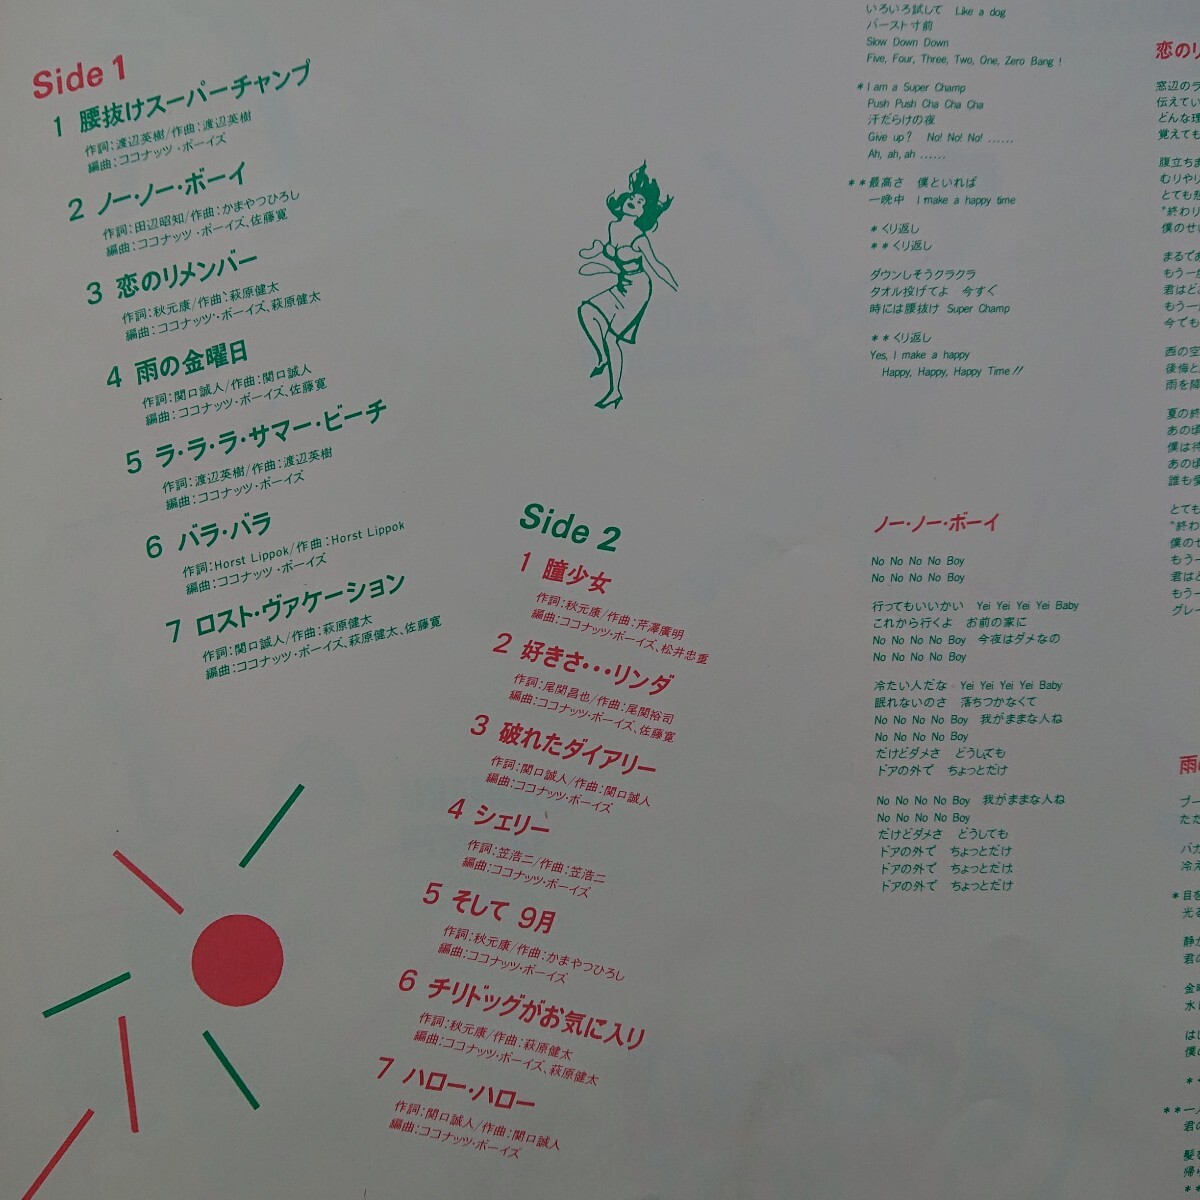 Side 1
1 腰抜けスーパーチャンプ
作詞：渡辺英樹/作曲：渡辺英樹
編曲：ココナッツ・ボーイズ
2 ノー・ノー・ボーイ
作詞：田辺昭知/作曲：かまやつひろし
編曲：ココナッツ・ボーイズ、佐藤寛
3 恋のリメンバー
作詞：秋元康/作曲：萩原健太
編曲：ココナッツ・ボーイズ、萩原健太
4 雨の金曜日
作詞：関口誠人/作曲：関口誠人
編曲：ココナッツ・ボーイズ、佐藤寛
5 ラ・ラ・ラ・サマー・ビーチ
作詞：渡辺英樹/作曲：渡辺英樹
編曲：ココナッツ・ボーイズ
6 バラ・バラ
作詞：Horst Lippok/作曲：Horst Lippok
編曲：ココナッツ・ボーイズ
7 ロスト・ヴァケーション
作詞：関口誠人/作曲：萩原健太
編曲：ココナッツ・ボーイズ、萩原健太、佐藤寛
Side 2
1 瞳少女
作詞：秋元康/作曲：芹澤廣明
編曲：ココナッツ・ボーイズ、松井忠重
2 好きさ・・・リンダ
作詞：尾関昌也/作曲：尾関裕司
編曲：ココナッツ・ボーイズ、佐藤寛
3 破れたダイアリー
作詞：関口誠人/作曲：関口誠人
編曲：ココナッツ・ボーイズ
4 シェリー
作詞：笠浩二/作曲：笠浩二
編曲：ココナッツ・ボーイズ
5 そして 9月
作詞：秋元康/作曲：かまやつひろし
編曲：ココナッツ・ボーイズ
6 チリドッグがお気に入り
作詞：秋元康/作曲：萩原健太
編曲：ココナッツ・ボーイズ、萩原健太
7 ハロー・ハロー
作詞：関口誠人/作曲：関口誠人
編曲：ココナッツ・ボーイズ
いろいろ試して Like a dog
バースト寸前
Slow Down Down
Five, Four, Three, Two, One, Zero Bang !
＊I am a Super Champ
Push Push Cha Cha Cha
汗だらけの夜
Give up ? No! No! No! ......
Ah, ah, ah ......
＊＊最高さ 僕といれば
一晩中 I make a happy time
＊くり返し
＊＊くり返し
ダウンしそうクラクラ
タオル投げてよ 今すぐ
時には腰抜け Super Champ
＊＊くり返し
Yes, I make a happy
Happy, Happy, Happy Time!!
ノー・ノー・ボーイ
No No No No Boy
No No No No Boy
行ってもいいかい Yei Yei Yei Yei Baby
これから行くよ お前の家に
No No No No Boy 今夜はダメなの
No No No No Boy
冷たい人だな Yei Yei Yei Yei Baby
眠れないのさ 落ちつかなくて
No No No No Boy 我がままな人ね
No No No No Boy
だけどダメさ どうしても
ドアの外で ちょっとだけ
No No No No Boy 我がままな人ね
No No No No Boy
だけどダメさ どうしても
ドアの外で ちょっとだけ
ドアの外で ちょっとだけ
ドアの外で ちょっとだけ
恋のリ
窓辺のラ
伝えてい
どんな理
覚えても
腹立ちま
むりやり
とても悲
"終わり
僕のせい
まるであ
もう一度
君はどこ
もう一度
今でも
西の空
後悔と
雨を降
夏の終
あの頃
僕は待
あの頃
誰も愛
とても
"終わ
僕のせ
もう一
君はど
もう一
グレー
雨の
プー
ただ
バカ
冷え
＊目を
光る
静か
君の
金曜
水
はじ
僕の
＊
＊＊一人
君の
髪を
帰ら
＊＊